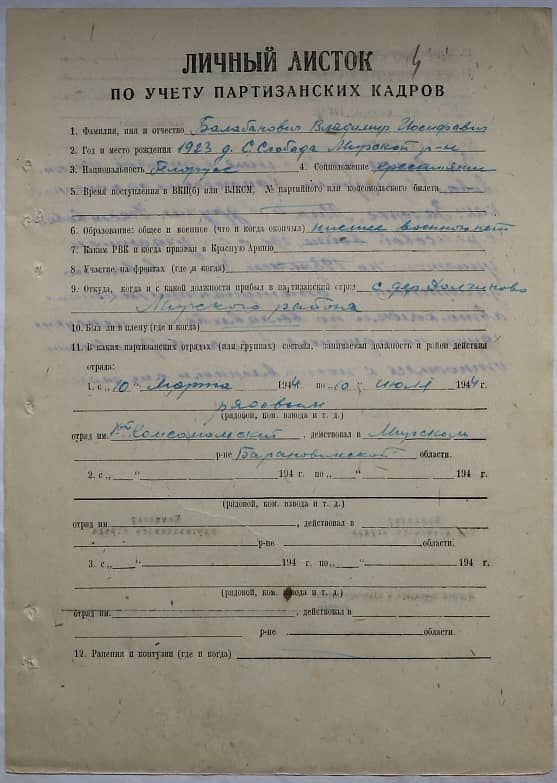 4
ЛИЧНЫЙ ЛИСТОК
ПО УЧЕТУ ПАРТИЗАНСКИХ КАДРОВ
1. Фамилия, имя и отчество Балабанович Владимир Иосифович
2. Год и место рождения 1923 д. С.Слобода Мирской р-н
3. Национальность белорус 4. Соцположение крестьянин
5. Время поступления в ВКП(б) или ВЛКСМ, № партийного или комсомольского билета
6. Образование: общее и военное (что и когда окончил) низшее военного нет
7. Каким РВК и когда призван в Красную Армию
8. Участие на фронтах (где и когда)
9. Откуда, когда и с какой должности прибыл в партизанский отряд с дер Долгиново
Мирского района
10. Был ли в плену (где и когда)
11. В каких партизанских отрядах (или группах) состоял, занимаемая должность и район действия
отряда:
1. с „10“ марта 1944 г. по „10“ июля 1944 г.
рядовым
(рядовой, ком. взвода и т. д.)
отряд им. Комсомольский, действовал в Мирском
р-не Барановичской области.
2. с „ “ 194 г. по „ “ 194 г.
(рядовой, ком. взвода и т. д.)
отряд им. , действовал в
р-не области.
3. с „ “ 194 г. по „ “ 194 г.
(рядовой, ком. взвода и т. д.)
отряд им. , действовал в
р-не области.
12. Ранения и контузии (где и когда)